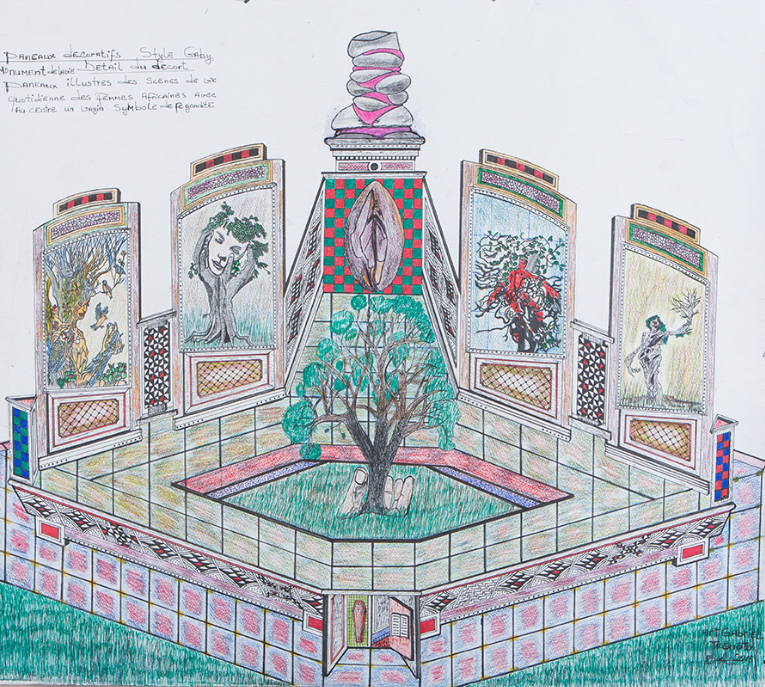 PANEAUX decoratifs Style Gaby
MONUMENT de la vie Detail du decort
PANEAUX illustres des Scènes de vie
quotidienne des femmes Africaines avec
Au centre un vagin Symbole de fegondité
Art GABRIEL